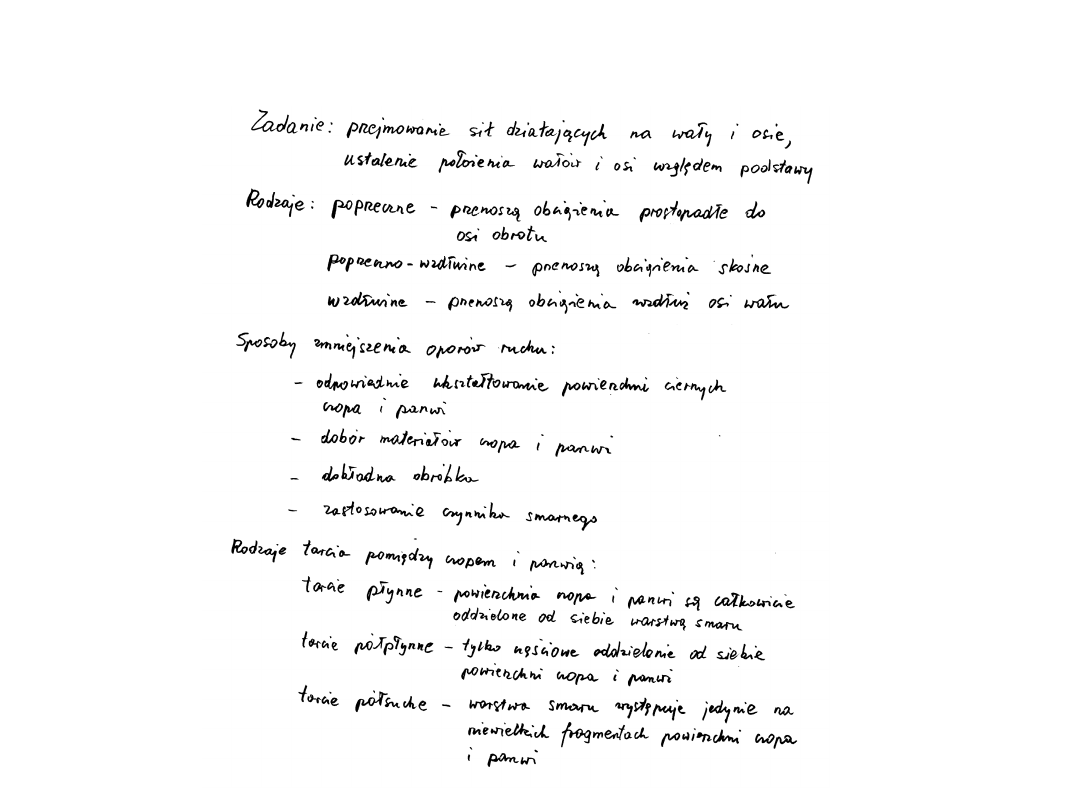 Zadanie: przejmowanie sił działających na wały i osie,
ustalenie położenia wałów i osi względem podstawy
Rodzaje: poprzeczne - przenoszą obciążenia prostopadłe do
osi obrotu
poprzeczno-wzdłużne - przenoszą obciążenia skośne
wzdłużne - przenoszą obciążenia wzdłuż osi wału
Sposoby zmniejszenia oporów ruchu:
- odpowiednie ukształtowanie powierzchni ciernych
czopa i panwi
- dobór materiałów czopa i panwi
- dokładna obróbka
- zastosowanie czynnika smarnego
Rodzaje tarcia pomiędzy czopem i panwią:
tarcie płynne - powierzchnia czopa i panwi są całkowicie
oddzielone od siebie warstwą smaru
tarcie półpłynne - tylko częściowe oddzielenie od siebie
powierzchni czopa i panwi
tarcie półsuche - warstwa smaru występuje jedynie na
niewielkich fragmentach powierzchni czopa
i panwi